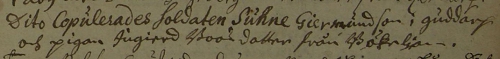 Dito Copulerades Soldaten Suhne Giermundson i guddarp
och pigan Ingierd Boos dotter från Bökeljan.